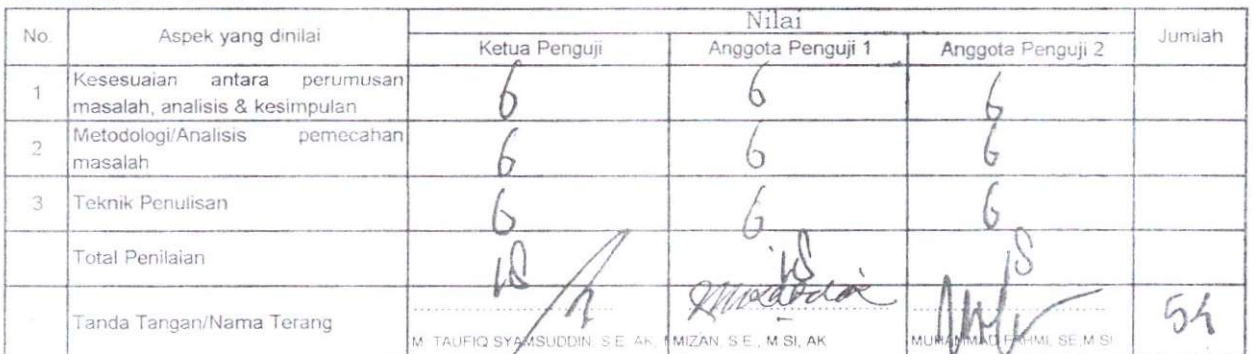 Nilai
No. Aspek yang dinilai Jumlah
Ketua Penguji Anggota Penguji 1 Anggota Penguji 2
Kesesuaian antara perumusan
1 6 6 6
masalah, analisis & kesimpulan
Metodologi/Analisis pemecahan
2 6 6 6
masalah
3 Teknik Penulisan 6 6 6
Total Penilaian 18 18 18
Tanda Tangan/Nama Terang 54
M. TAUFIQ SYAMSUDDIN, S.E. AK, MIZAN, S.E., M.SI, AK MUHAMMAD FAHMI, SE,M.SI